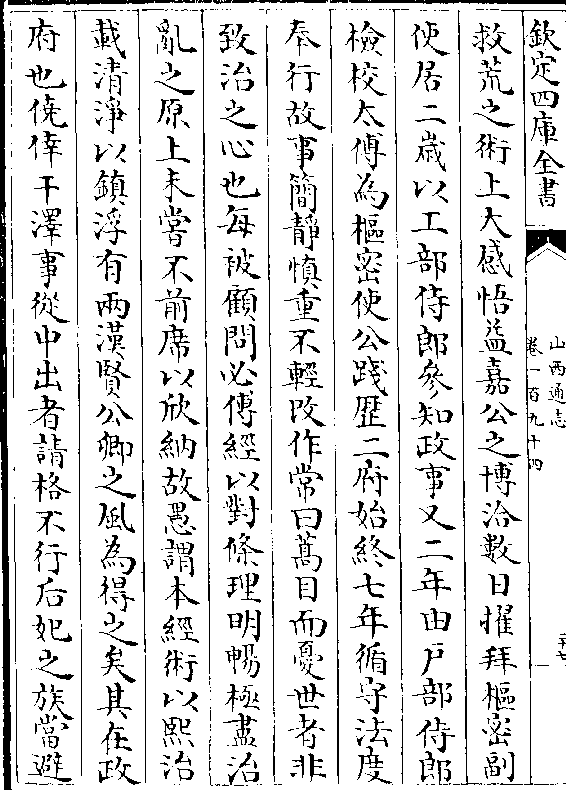 欽定四庫全書
山西通志
卷一百九十四
救荒之術上大感悟益嘉公之博洽數日擢拜樞密副
使居二歲以工部侍郎參知政事又二年由戶部侍郎
檢校太傅為樞密使公踐歷二府始終七年循守法度
奉行故事簡靜慎重不輕改作常曰蒿目而憂世者非
致治之心也每被顧問必傅經以對條理明暢極盡治
亂之原上未嘗不前席以欣納故愚謂本經術以熙治
載清淨以鎮浮有兩漢賢公卿之風為得之矣其在政
府也僥倖干澤事從中出者請格不行后妃之族當避